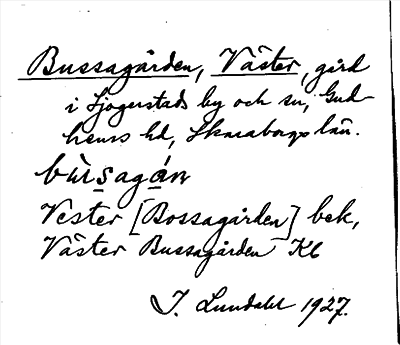 Bussagården, Väster, gård
i Sjogerstads by och sn, Gud-
hems hd, Skaraborgs län.
bùsagán
Vester [Bossagården] bek,
Väster Bussagården Kb
J. Lundahl 1927.